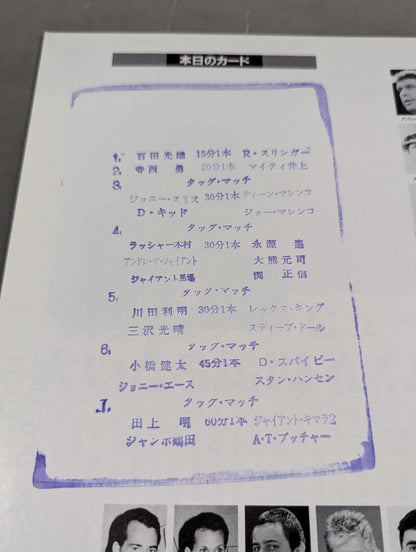 本日のカード
1. 百田光雄 15分1本 R・スリンガー
2. 寺西 勇 20分1本 マイティ井上
3. タッグ・マッチ
ジョニー・スミス 30分1本 ディーン・マレンコ
D・キッド ジョー・マレンコ
4. タッグ・マッチ
ラッシャー木村 30分1本 永源 遙
アンドレ・ザ・ジャイアント 大熊元司
ジャイアント馬場 渕 正信
5. タッグ・マッチ
川田利明 30分1本 レックス・キング
三沢光晴 スティーブ・ドール
6. タッグ・マッチ
小橋健太 45分1本 D・スパイビー
ジョニー・エース スタン・ハンセン
7. タッグ・マッチ
田上 明 60分1本 ジャイアント・キマラ2
ジャンボ鶴田 A・T・ブッチャー